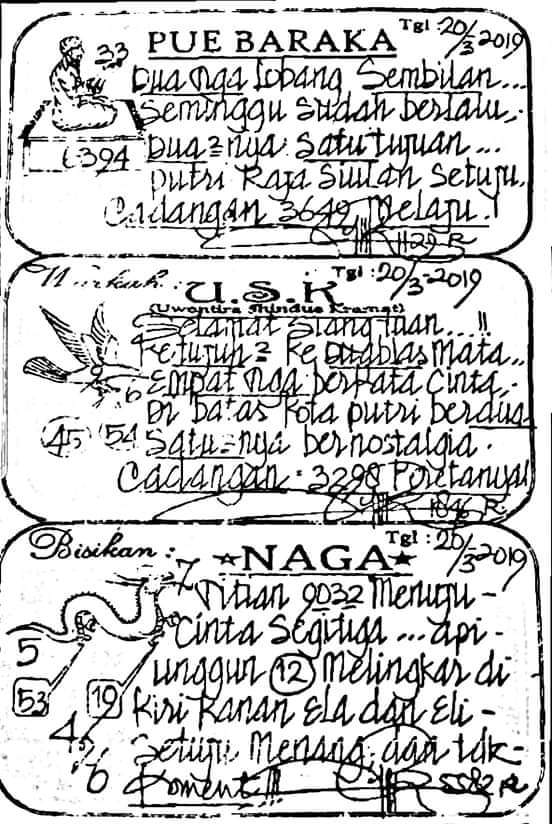 Tgl : 20/3-2019
33
PUE BARAKA
Dua nga lobang Sembilan...
Seminggu sudah berlalu,
6394
Dua=nya satu tujuan ...
putri Raja Siulan setuju.
Cadangan 3649 Melaju!
1129 R
Tgl : 20/3-2019
U.S.K
(Uwentira Shindue Kramat)
Selamat siang tuan....!!
Ketujuh = Ke Duablas Mata...
6
Empat nga berkata Cinta,
Di batas kota putri berdua
45 54
Satu=nya bernostalgia.
Cadangan : 3298 Poretanyal
1846 R
Bisikan :
Tgl : 20/3-2019
NAGA
7
Titian 9032 Menuju -
Cinta Segitiga ... api -
5
unggun 12 Melingkar di
53 19
Kiri Kanan Ela dan Eli -
4
Setuju Menang, dan tdk -
6
Koment !!!
5582 R